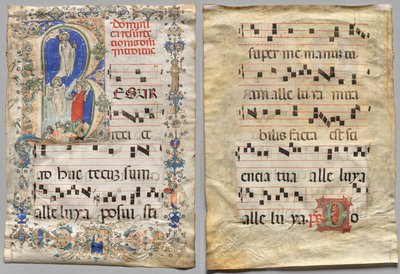 Domini
ca resurre
ctionis dni
introitus
ESUR
rexi et
ad huc tecuz sum
alle luya posui sti
super me manum tu
am alle luya mira
bilis facta est sci
encia tua alle luya
alle lu ya. ps Do